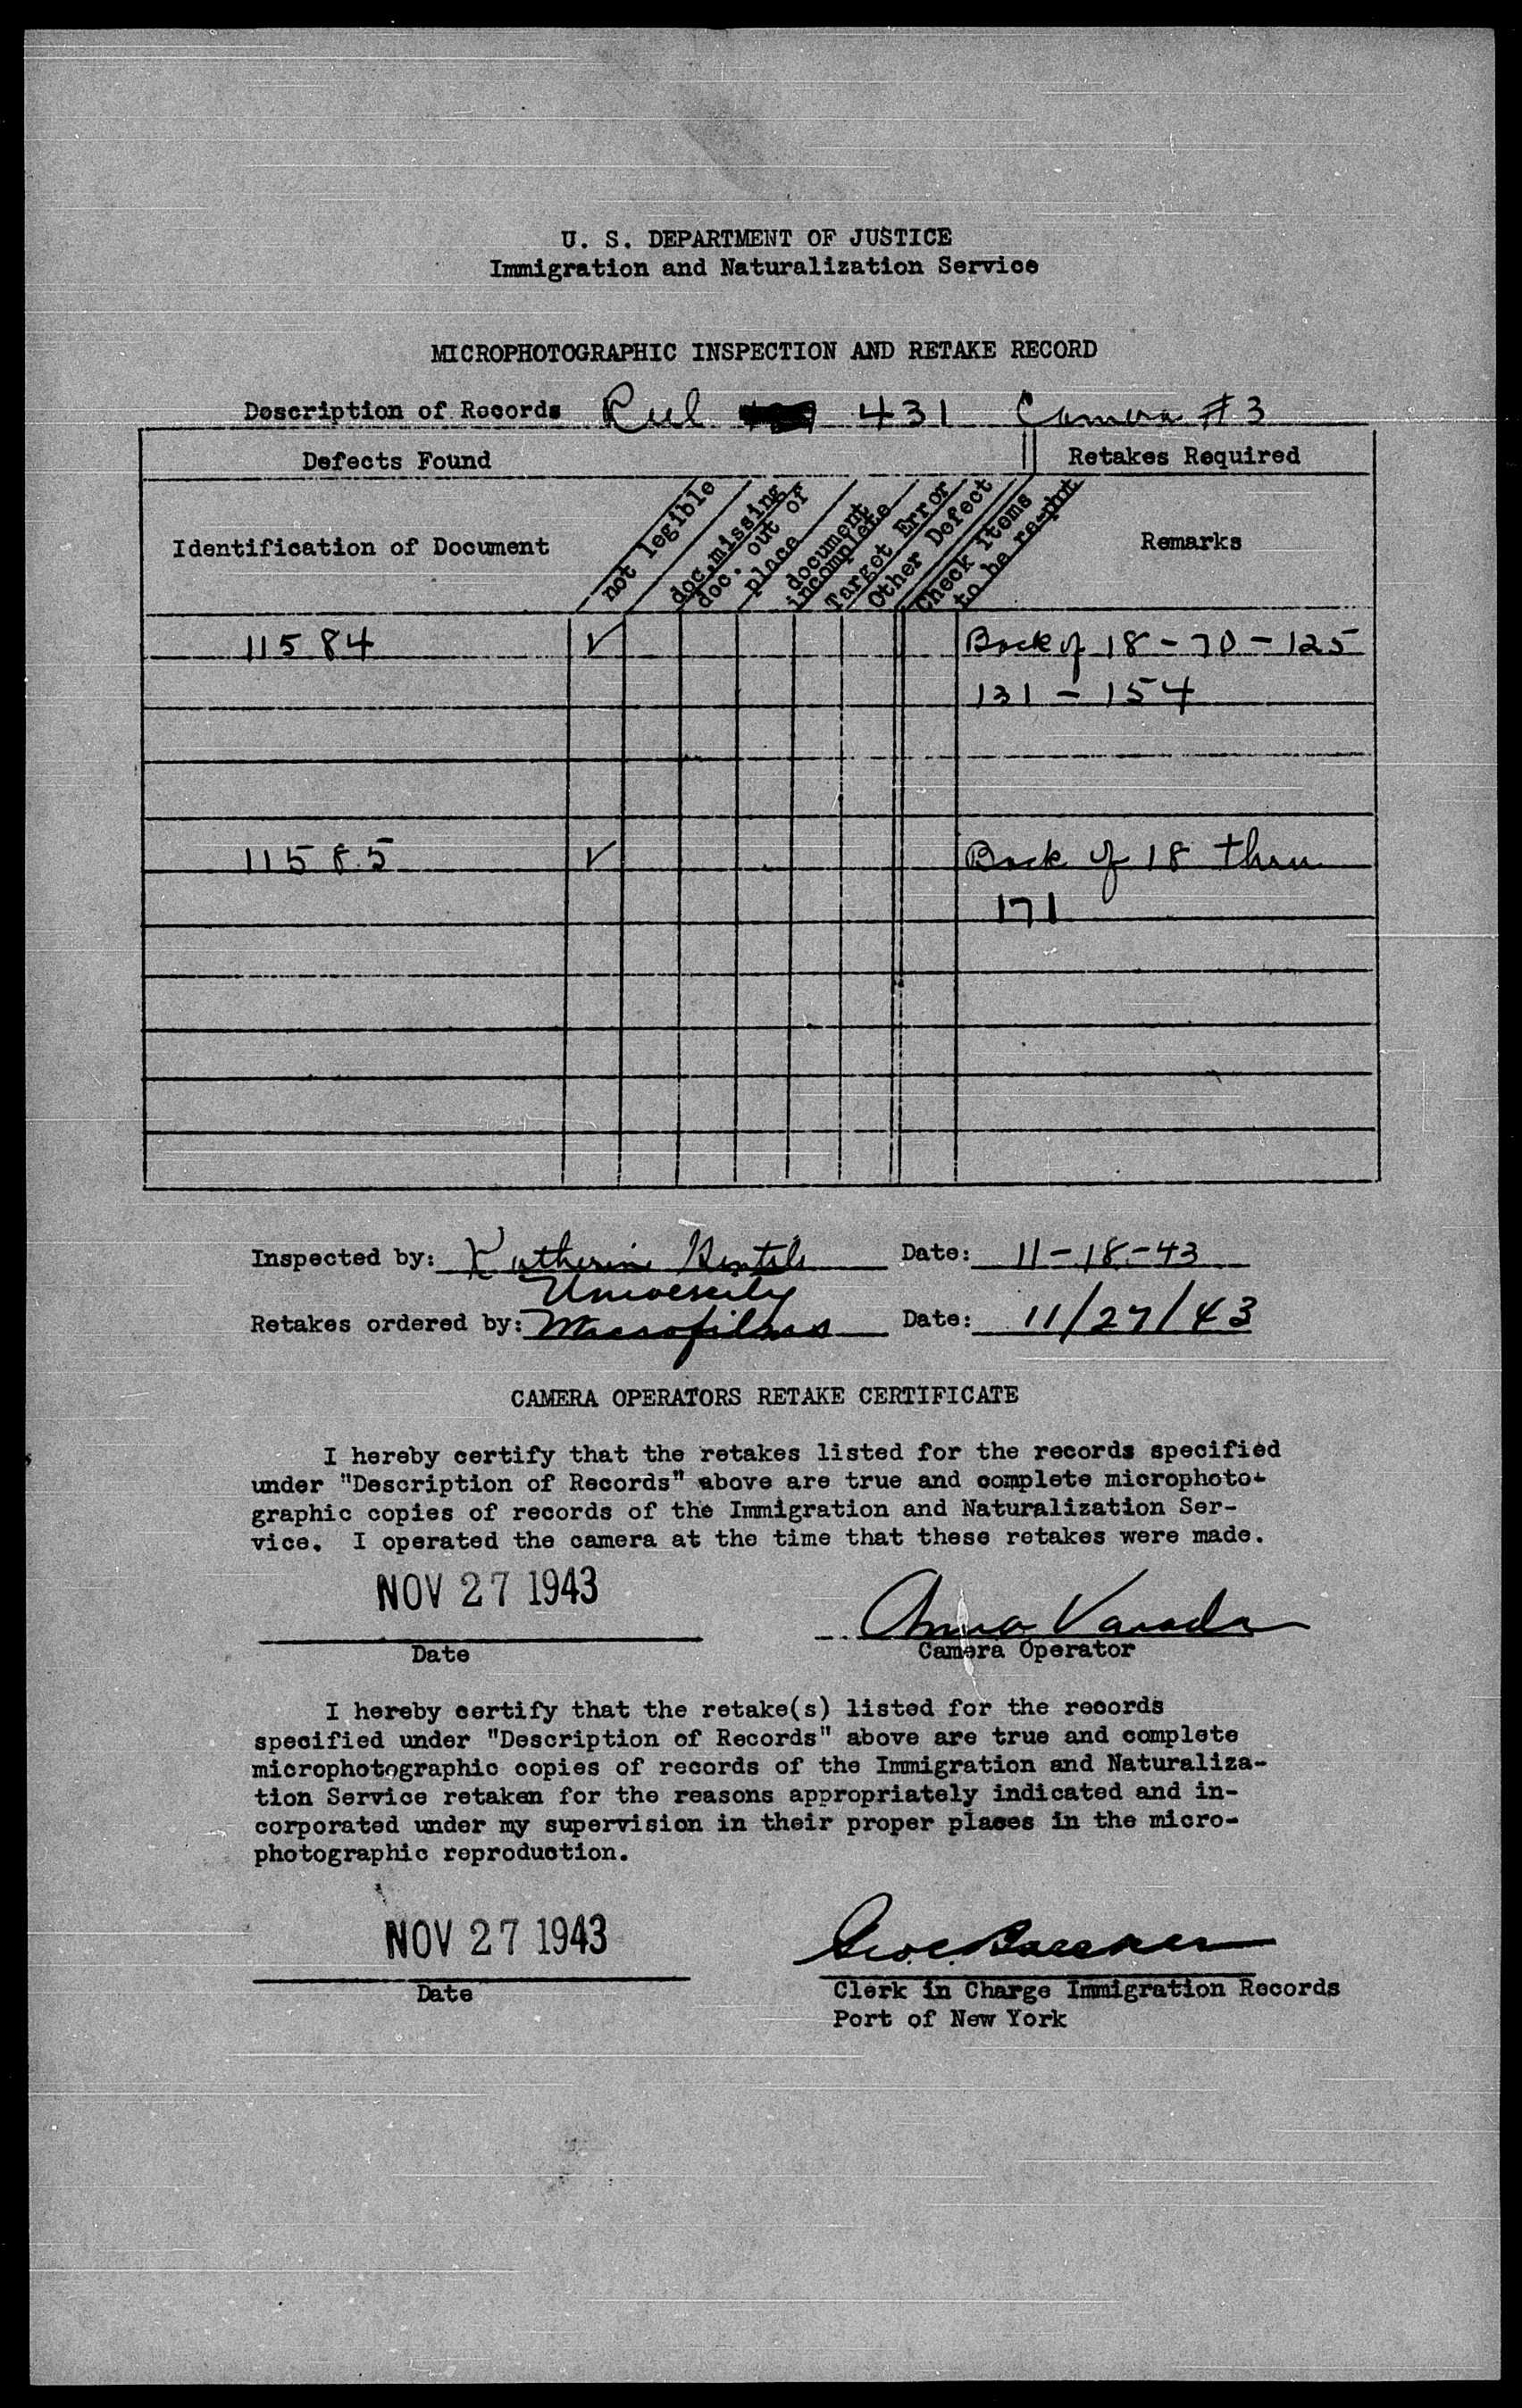 U. S. DEPARTMENT OF JUSTICE
Immigration and Naturalization Service
MICROPHOTOGRAPHIC INSPECTION AND RETAKE RECORD
Description of Records Reel 431 Camera #3
Defects Found Retakes Required
Identification of Document
not legible
doc. missing
doc. out of
place
document
incomplete
Target Error
Other Defect
Check Items
to be re-phot
Remarks
11584 ✓ Back of 18-70-125
131-154
11585 ✓ Back of 18 thru
171
Inspected by: Katherine Date: 11-18-43
University
Retakes ordered by: Microfilms Date: 11/27/43
CAMERA OPERATORS RETAKE CERTIFICATE
I hereby certify that the retakes listed for the records specified
under "Description of Records" above are true and complete microphoto-
graphic copies of records of the Immigration and Naturalization Ser-
vice. I operated the camera at the time that these retakes were made.
NOV 27 1943 Anna
Date Camera Operator
I hereby certify that the retake(s) listed for the records
specified under "Description of Records" above are true and complete
microphotographic copies of records of the Immigration and Naturaliza-
tion Service retaken for the reasons appropriately indicated and in-
corporated under my supervision in their proper places in the micro-
photographic reproduction.
NOV 27 1943
Date Clerk in Charge Immigration Records
Port of New York